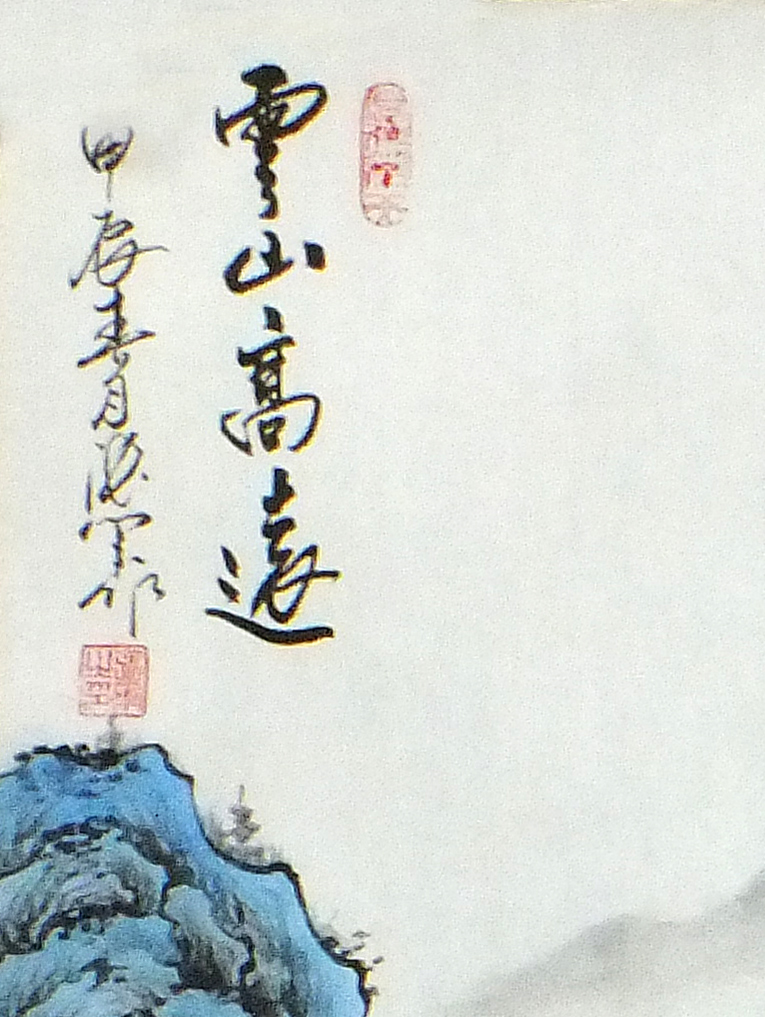 雲山高遠
甲辰春月
作